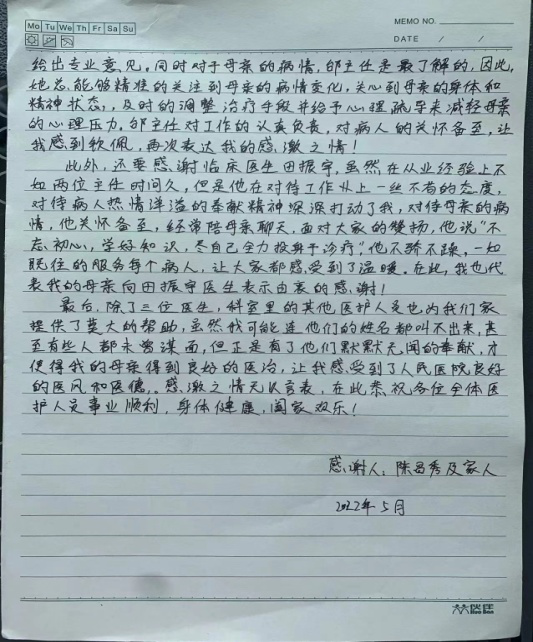 Mo Tu We Th Fr Sa Su
MEMO NO.
DATE / /
给出专业意见。同时对于母亲的病情,邹主任是最了解的,因此,
她总能够精准的关注到母亲的病情变化,关心到母亲的身体和
精神状态,及时的调整治疗手段并给予心理疏导来减轻母亲
的心理压力。邹主任对工作的认真负责,对病人的关怀备至,让
我感到钦佩,再次表达我的感激之情!
此外,还要感谢临床医生田振宇,虽然在从业经验上不
如两位主任时间久,但是他在对待工作从上一丝不苟的态度,
对待病人热情洋溢的奉献精神深深打动了我,对待母亲的病
情,他关怀备至,经常陪母亲聊天,面对大家的赞扬,他说“不
忘初心,学好知识,尽自己全力投身于诊疗”,他不骄不躁,一如
既往的服务每个病人,让大家都感受到了温暖。在此,我也代
表我的母亲向田振宇医生表示由衷的感谢!
最后,除了三位医生,科室里的其他医护人员也为我们家
提供了莫大的帮助,虽然我可能连他们的姓名都叫不出来,甚
至有些人都未曾谋面,但正是有了他们默默无闻的奉献,才
使得我的母亲得到良好的医治,让我感受到了人民医院良好
的医风和医德。感激之情无以言表,在此恭祝各位全体医
护人员事业顺利,身体健康,阖家欢乐!
感谢人:陈昌秀及家人
2022年5月